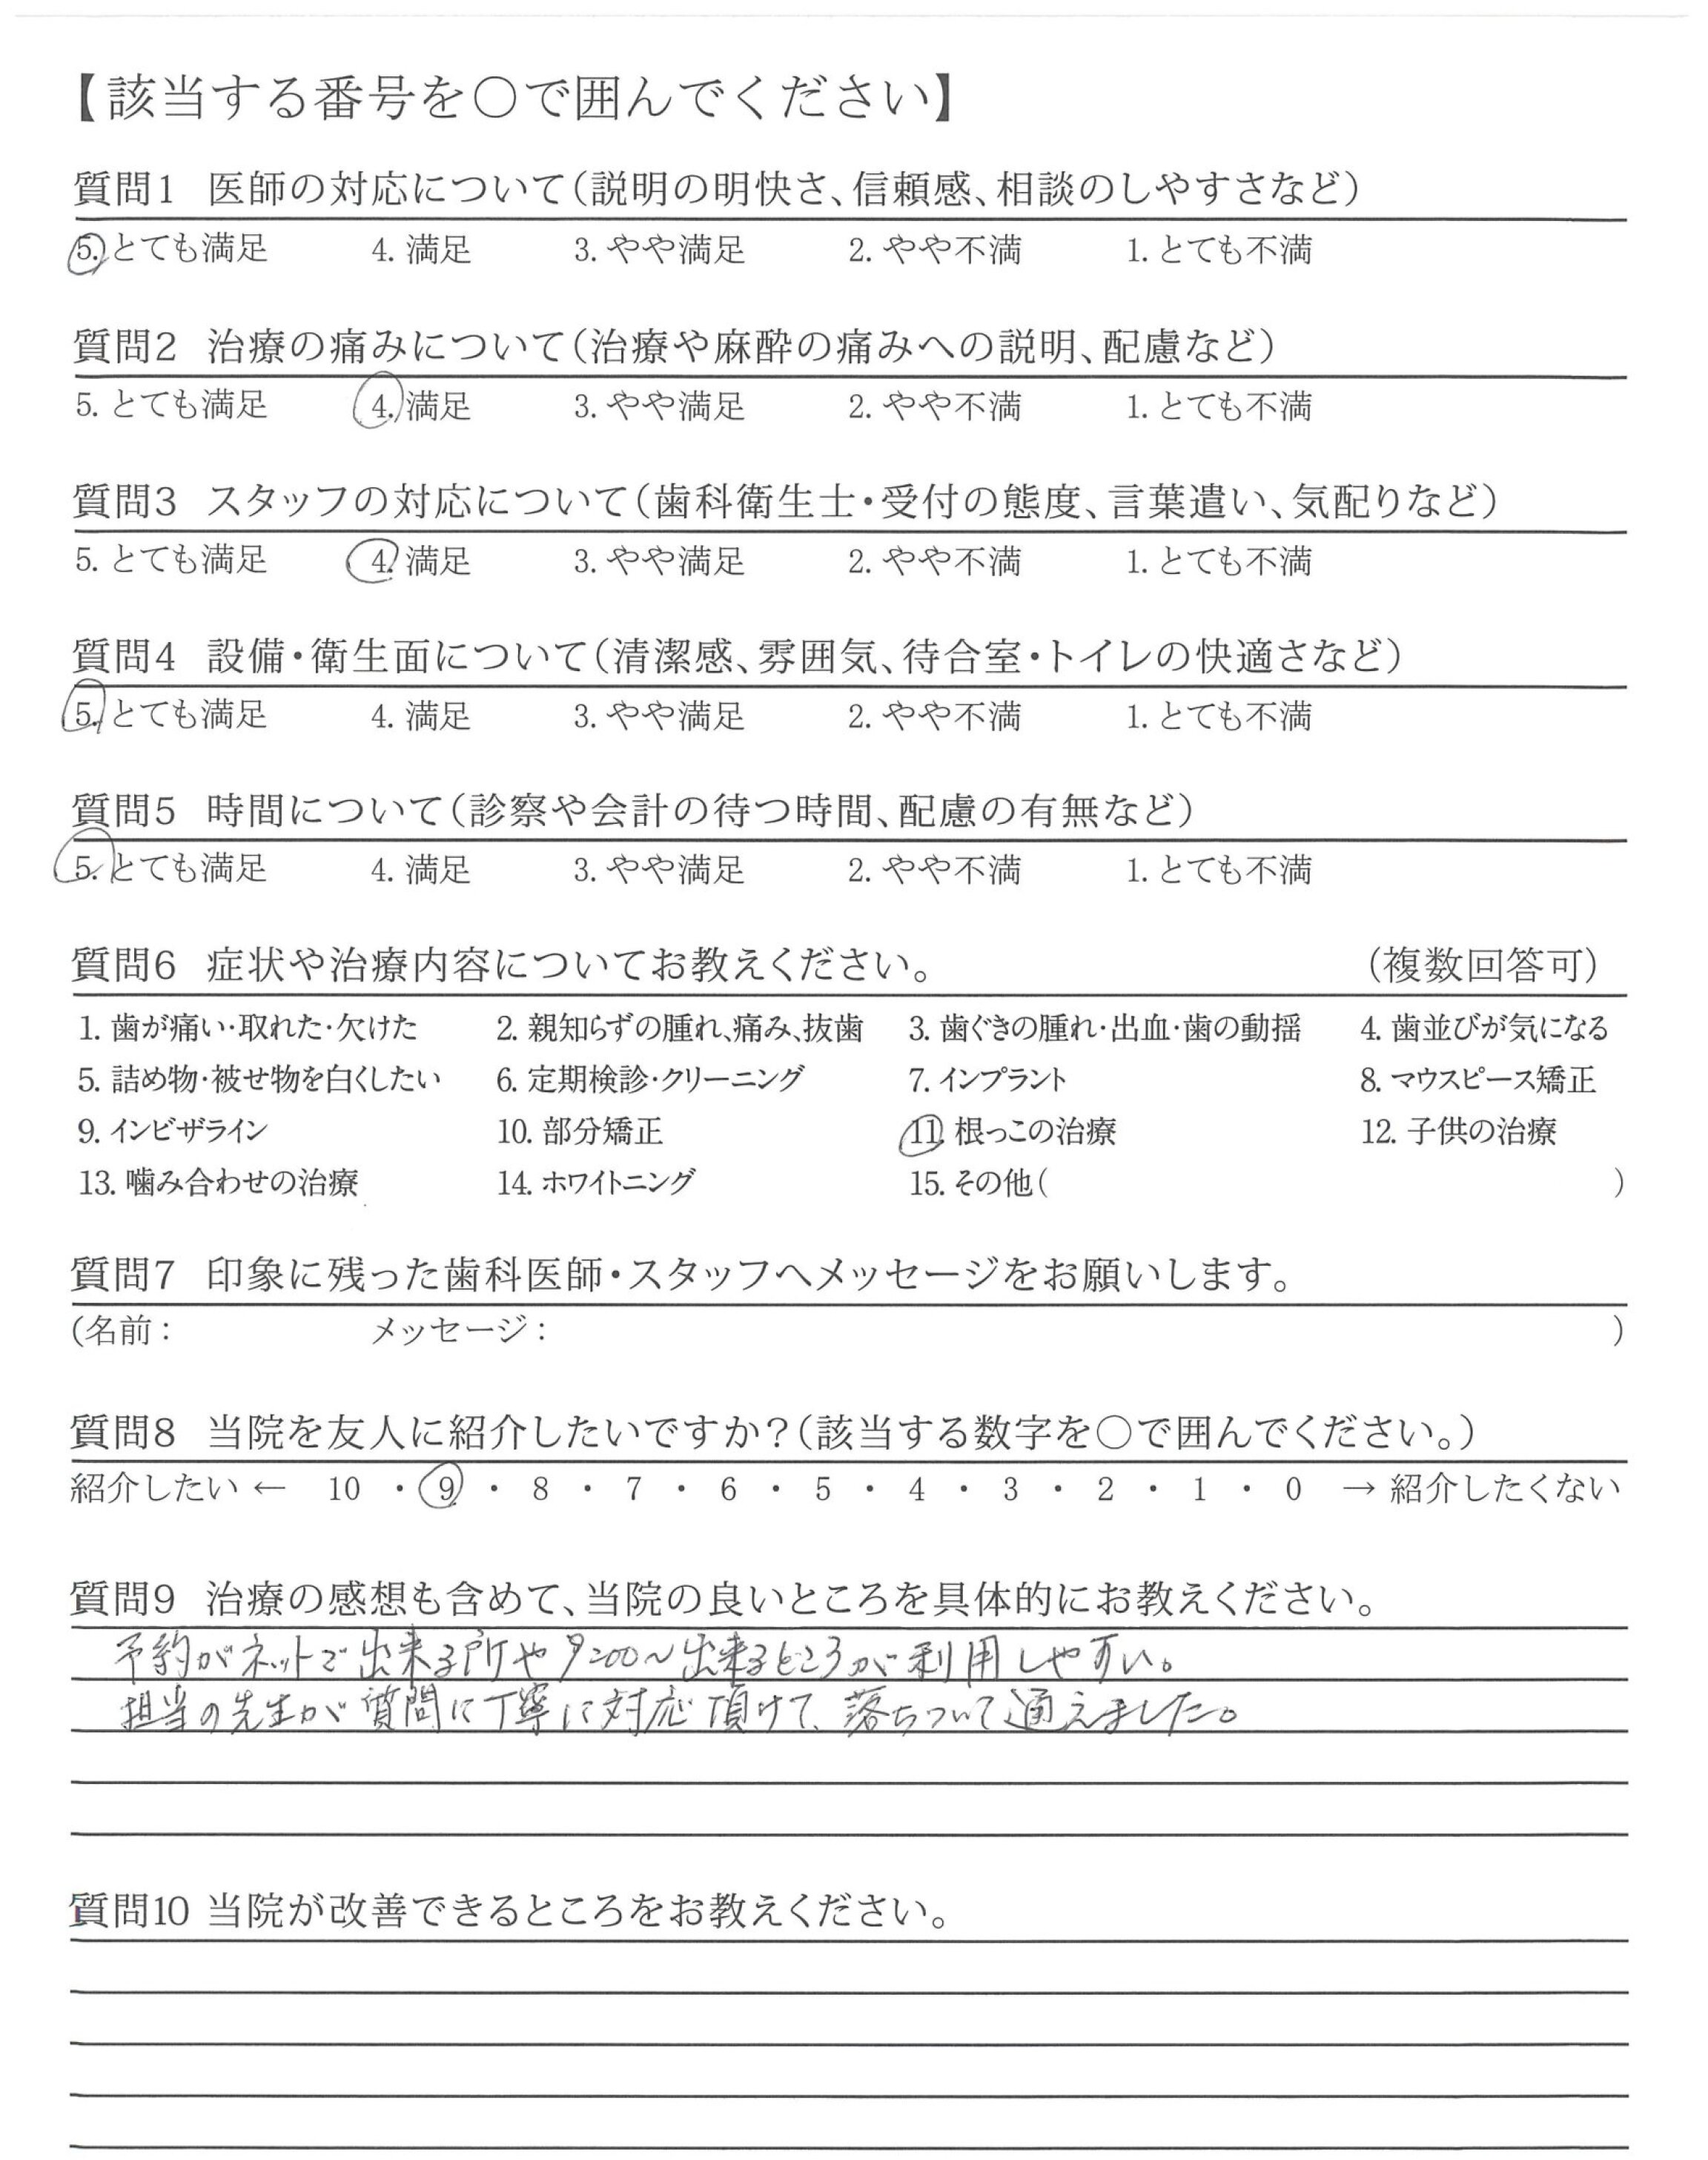 【該当する番号を○で囲んでください】
質問1 医師の対応について(説明の明快さ、信頼感、相談のしやすさなど)
5. とても満足 4. 満足 3. やや満足 2. やや不満 1. とても不満
質問2 治療の痛みについて(治療や麻酔の痛みへの説明、配慮など)
5. とても満足 4. 満足 3. やや満足 2. やや不満 1. とても不満
質問3 スタッフの対応について(歯科衛生士・受付の態度、言葉遣い、気配りなど)
5. とても満足 4. 満足 3. やや満足 2. やや不満 1. とても不満
質問4 設備・衛生面について(清潔感、雰囲気、待合室・トイレの快適さなど)
5. とても満足 4. 満足 3. やや満足 2. やや不満 1. とても不満
質問5 時間について(診察や会計の待つ時間、配慮の有無など)
5. とても満足 4. 満足 3. やや満足 2. やや不満 1. とても不満
質問6 症状や治療内容についてお教えください。 (複数回答可)
1. 歯が痛い・取れた・欠けた 2. 親知らずの腫れ、痛み、抜歯 3. 歯ぐきの腫れ・出血・歯の動揺 4. 歯並びが気になる
5. 詰め物・被せ物を白くしたい 6. 定期検診・クリーニング 7. インプラント 8. マウスピース矯正
9. インビザライン 10. 部分矯正 11. 根っこの治療 12. 子供の治療
13. 噛み合わせの治療 14. ホワイトニング 15. その他( )
質問7 印象に残った歯科医師・スタッフへメッセージをお願いします。
(名前: メッセージ: )
質問8 当院を友人に紹介したいですか?(該当する数字を○で囲んでください。)
紹介したい ← 10 ・ 9 ・ 8 ・ 7 ・ 6 ・ 5 ・ 4 ・ 3 ・ 2 ・ 1 ・ 0 → 紹介したくない
質問9 治療の感想も含めて、当院の良いところを具体的にお教えください。
予約がネットで出来る所や9:00〜出来るところが利用しやすい。
担当の先生が質問に丁寧に対応頂けて、落ちついて通えました。
質問10 当院が改善できるところをお教えください。